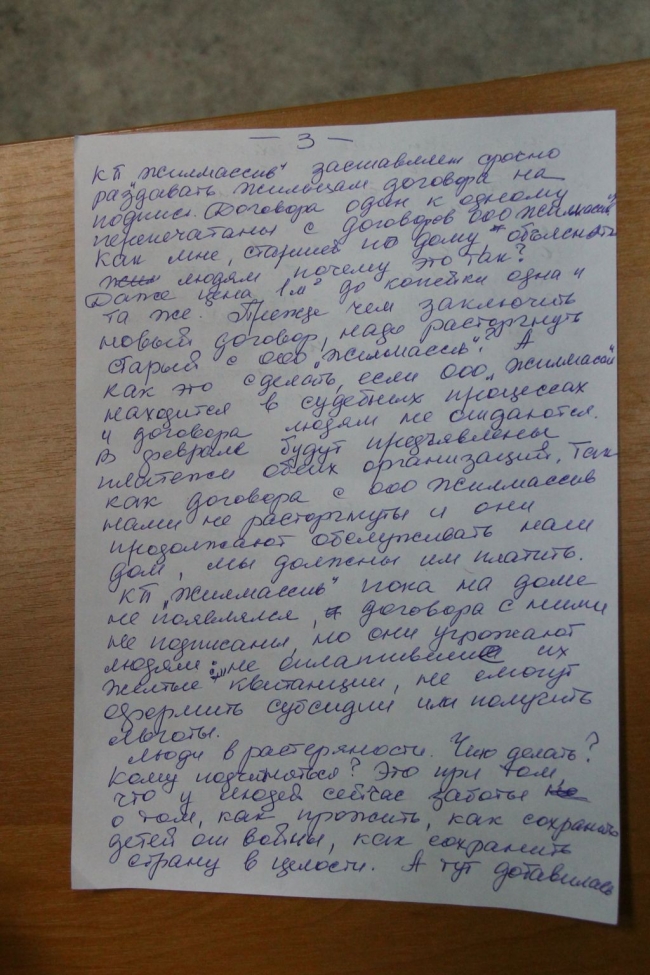 — 3 —
КП „Жилмассив" заставляет срочно
раздавать жильцам договора на
подпись. Договора один к одному
перепечатаны с договоров ООО „Жилмассив"
как мне, старшей по дому объяснить
людям почему это так?
Даже цена 1м² до копейки одна и
та же. Прежде чем заключить
новый договор, надо расторгнуть
старый с ООО „Жилмассив". А
как это сделать, если ООО „Жилмассив"
находится в судебных процессах
и договора людям не
В феврале будут предъявлены
платежи обеих организаций, так
как договора с ООО Жилмассив
нами не расторгнуты и они
продолжают обслуживать наш
дом, мы должны им платить.
КП „Жилмассив" пока на доме
не появлялся, договора с ними
не подписаны, но они угрожают
людям: не их
„желтые" квитанции, не смогут
оформить субсидии или получить
льготы.
Люди в растеряности. Что делать?
Кому подчиняться? Это при том
что у людей сейчас заботы
о том, как прожить, как сохранить
детей от войны, как сохранить
страну в целости. А тут добавилась